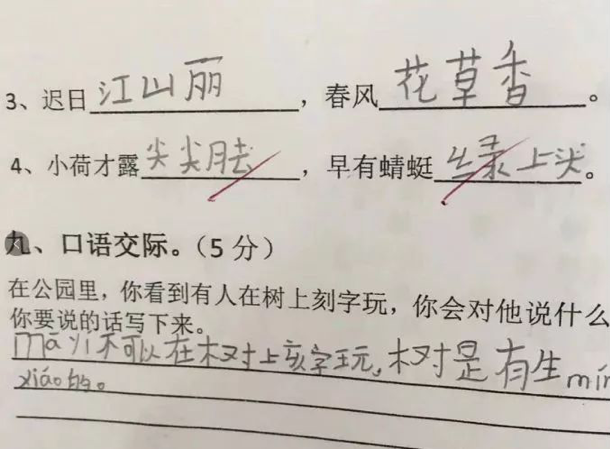 3、迟日江山丽，春风花草香。
4、小荷才露尖尖胠，早有蜻蜓绿上。
九、口语交际。（5 分）
在公园里，你看到有人在树上刻字玩，你会对他说什么
你要说的话写下来。
不可以在树上亥字玩，树是有生min
xiáo的。